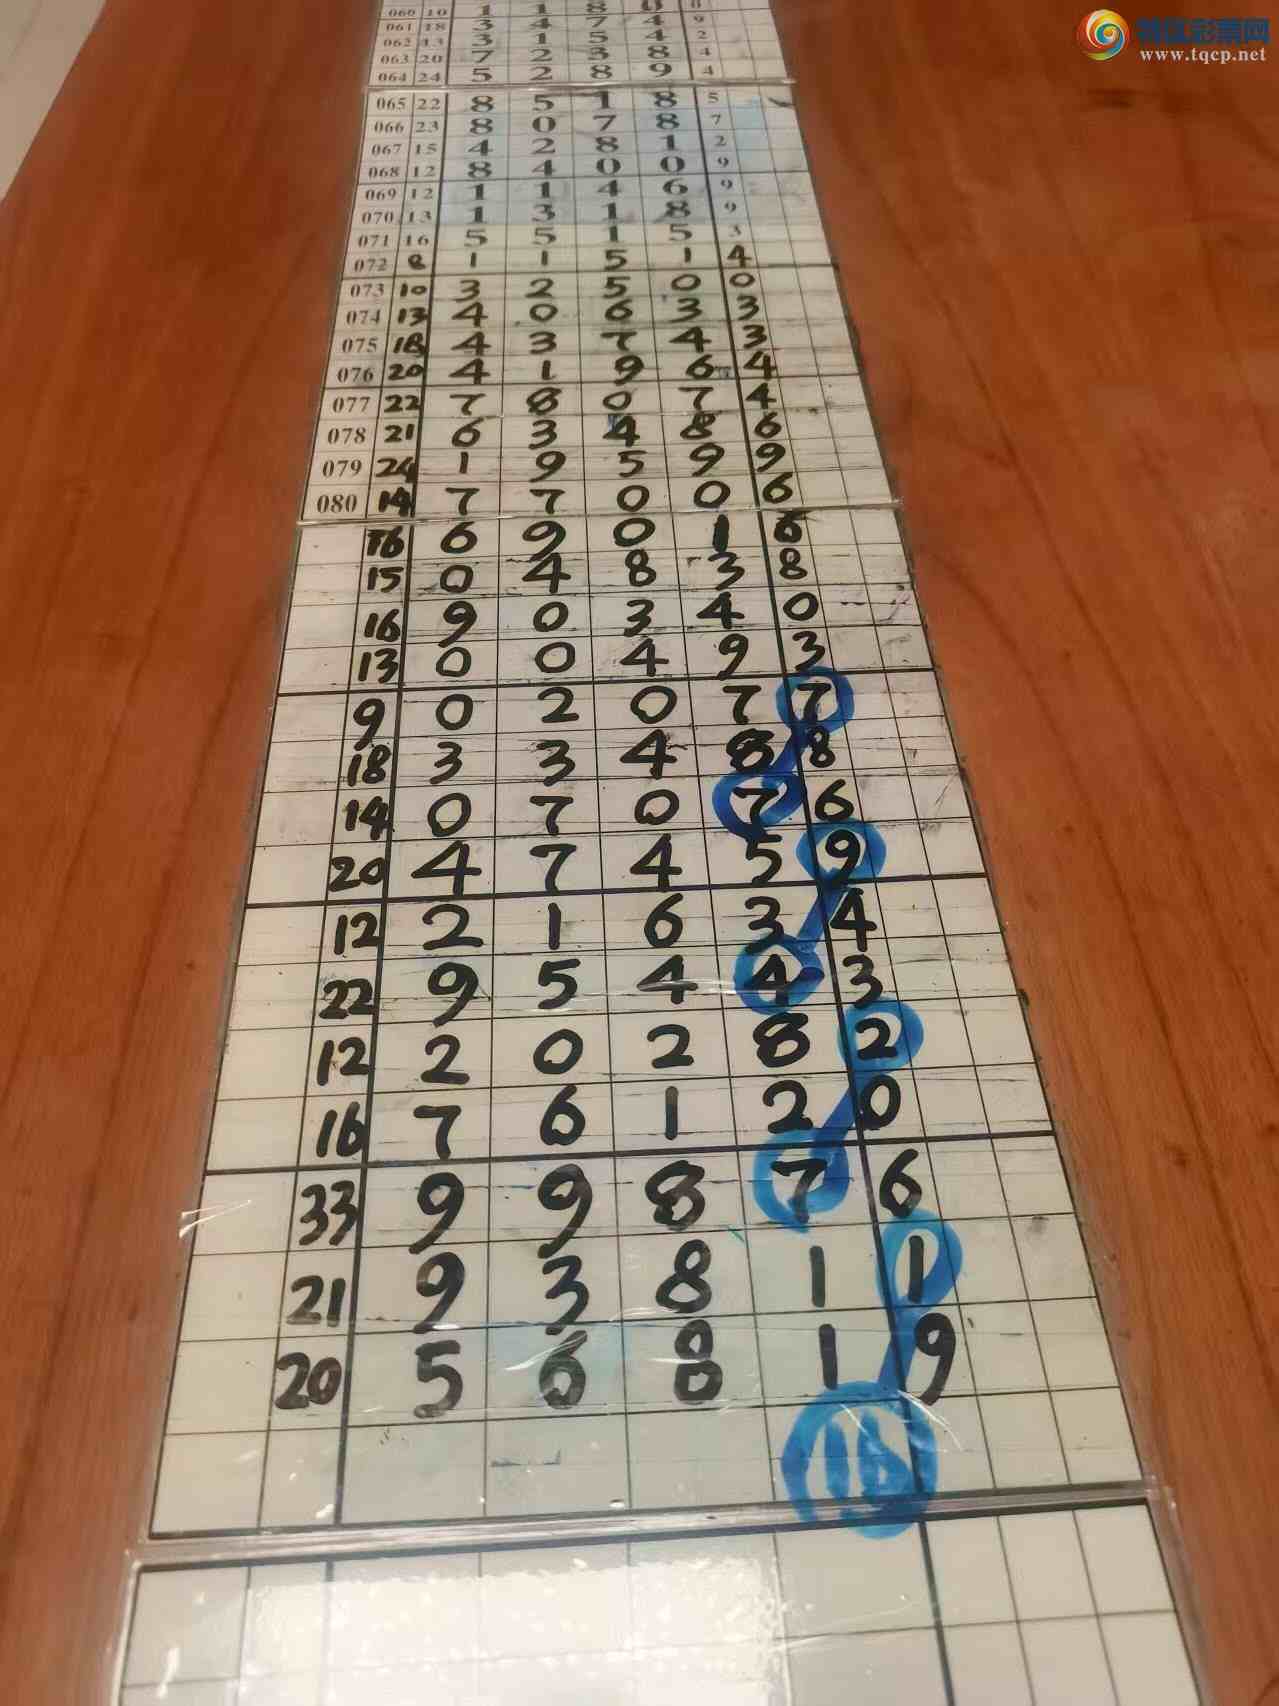 特区彩票网
www.tqcp.net
060 10 1 1 8 0 8
061 18 3 4 7 4 9
062 13 3 1 5 4 2
063 20 7 2 3 8 4
064 24 5 2 8 9 4
065 22 8 5 1 8 5
066 23 8 0 7 8 7
067 15 4 2 8 1 2
068 12 8 4 0 0 9
069 12 1 1 4 6 9
070 13 1 3 1 8 9
071 16 5 5 1 5 3
072 8 1 1 5 1 4
073 10 3 2 5 0 0
074 13 4 0 6 3 3
075 18 4 3 7 4 3
076 20 4 1 9 6 4
077 22 7 8 0 7 4
078 21 6 3 4 8 6
079 24 1 9 5 9 9
080 14 7 7 0 0 6
16 6 9 0 1 6
15 0 4 8 3 8
16 9 0 3 4 0
13 0 0 4 9 3
9 0 2 0 7 7
18 3 3 4 8 8
14 0 7 0 7 6
20 4 7 4 5 9
12 2 1 6 3 4
22 9 5 4 4 3
12 2 0 2 8 2
16 7 6 1 2 0
33 9 9 8 7 6
21 9 3 8 1 1
20 5 6 8 1 9
16